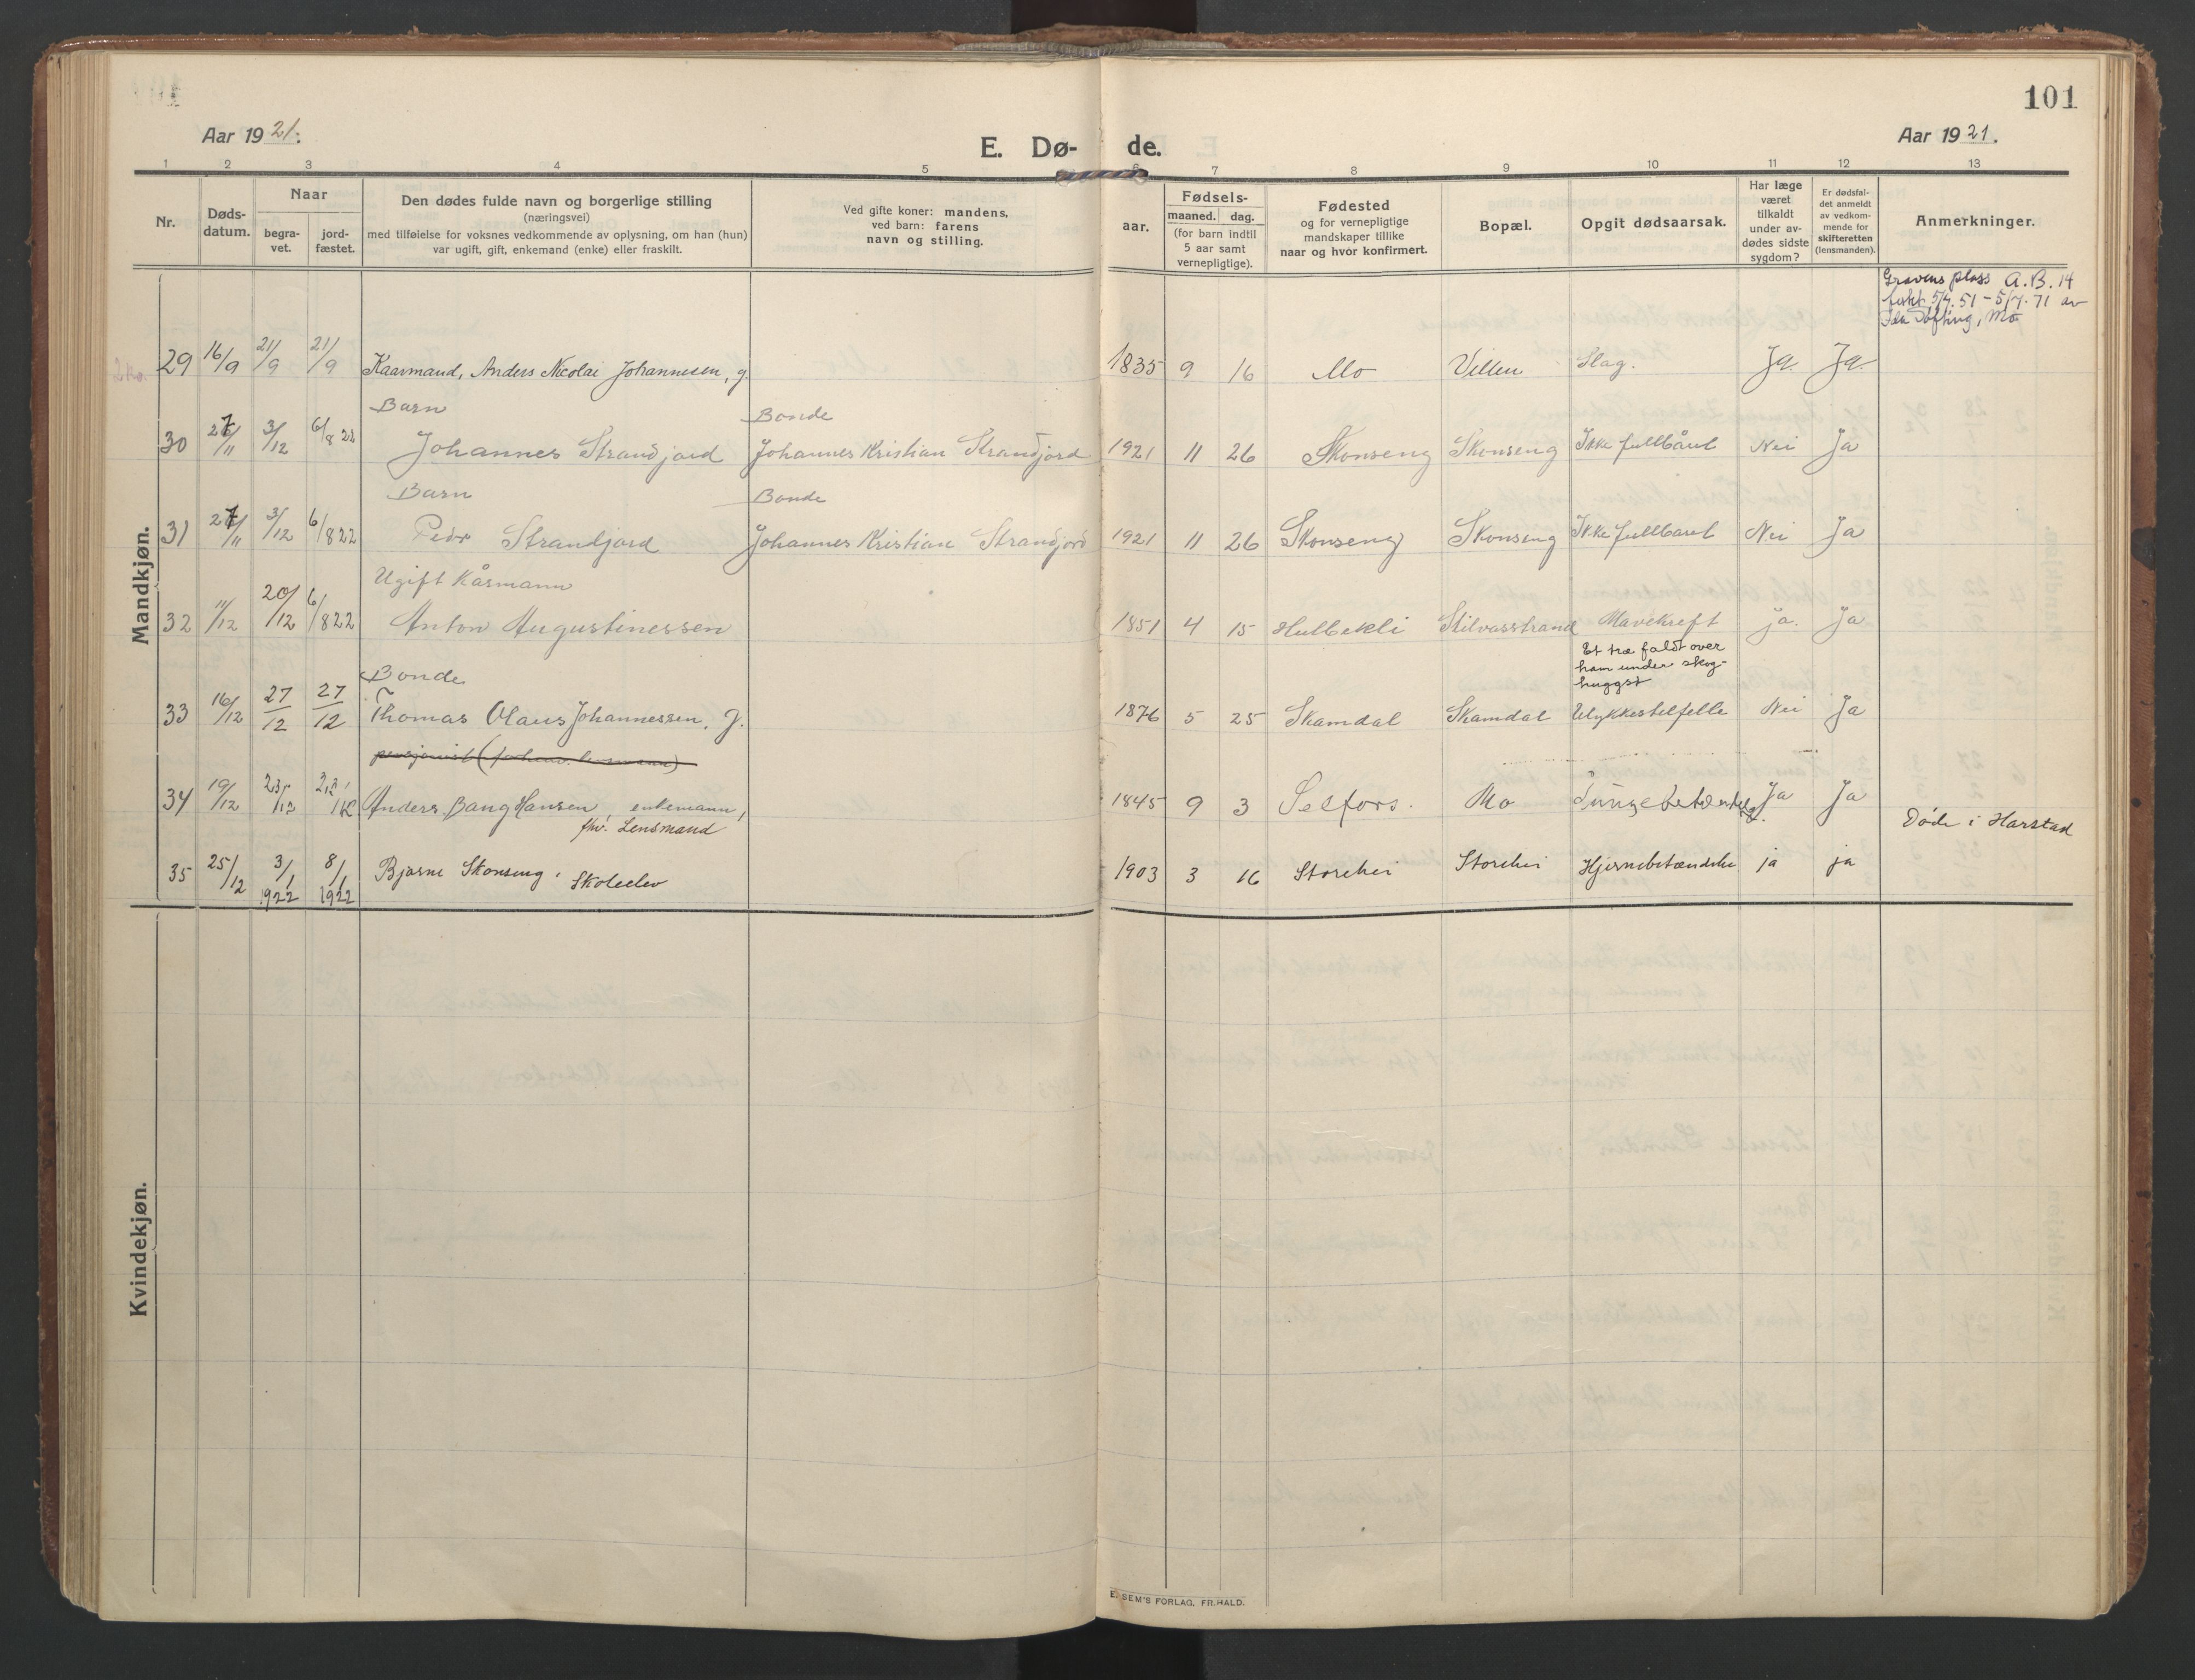 101
Aar 1921.
E. Dø- de.
Aar 1921.
1 2 3 4 5 6 7 8 9 10 11 12 13
Nr.
Døds-
datum.
Naar
begra-
vet.
jord-
fæstet.
Den dødes fulde navn og borgerlige stilling
(næringsvei)
med tilføielse for voksnes vedkommende av oplysning, om han (hun)
var ugift, gift, enkemand (enke) eller fraskilt.
Ved gifte koner: mandens,
ved barn: farens
navn og stilling.
Fødsels-
aar.
maaned. dag.
(for barn indtil
5 aar samt
vernepligtige).
Fødested
og for vernepligtige
mandskaper tillike
naar og hvor konfirmert.
Bopæl.
Opgit dødsaarsak.
Har læge
været
tilkaldt
under av-
dødes sidste
sygdom?
Er dødsfal-
det anmeldt
av vedkom-
mende for
skifteretten
(lensmanden).
Anmerkninger.
Mandkjøn.
Gravens plass A.B. 14
festet 5/7.51 - 5/7.71 av
Søfting, Mo
29 16/9 21/9 21/9 Kaarmand, Anders Nicolai Johannesen, g. 1835 9 16 Mo Villen Slag. Ja. Ja.
Barn Bonde
30 27/11 3/12 6/8 22 Johannes Strandjord Johannes Kristian Strandjord 1921 11 26 Skonseng Skonseng Ikke fullbåret Nei Ja
Barn Bonde
31 27/11 3/12 6/8 22 Peder Strandjord Johannes Kristian Strandjord 1921 11 26 Skonseng Skonseng Ikke fullbaret Nei Ja
Ugift Kårmann
32 11/12 20/12 6/8 22 Anton Augustinessen 1851 4 15 Hulbekli Stilvasstrand Mavekreft ja. Ja
Et træ faldt over
ham under skog-
huggst
Bonde
33 16/12 27/12 27/12 Thomas Olaus Johannessen. g. 1876 5 25 Skamdal Skamdal Ulykkestilfelle Nei Ja
pensjonist (forhenv. lensmann)
34 19/12 Anders Bang Hansen, enkemann, 1845 9 3 Selfors. Mo Lungebetændelse Ja Ja
fhv. Lensmand
Døde i Harstad
35 25/12 3/1 1922 8/1 1922 Bjarne Skonseng, Skoleelev 1903 3 16 Storehei Storehei Hjernebetændelse ja ja
Kvindekjøn.
E. SEM'S FORLAG, FR.HALD.